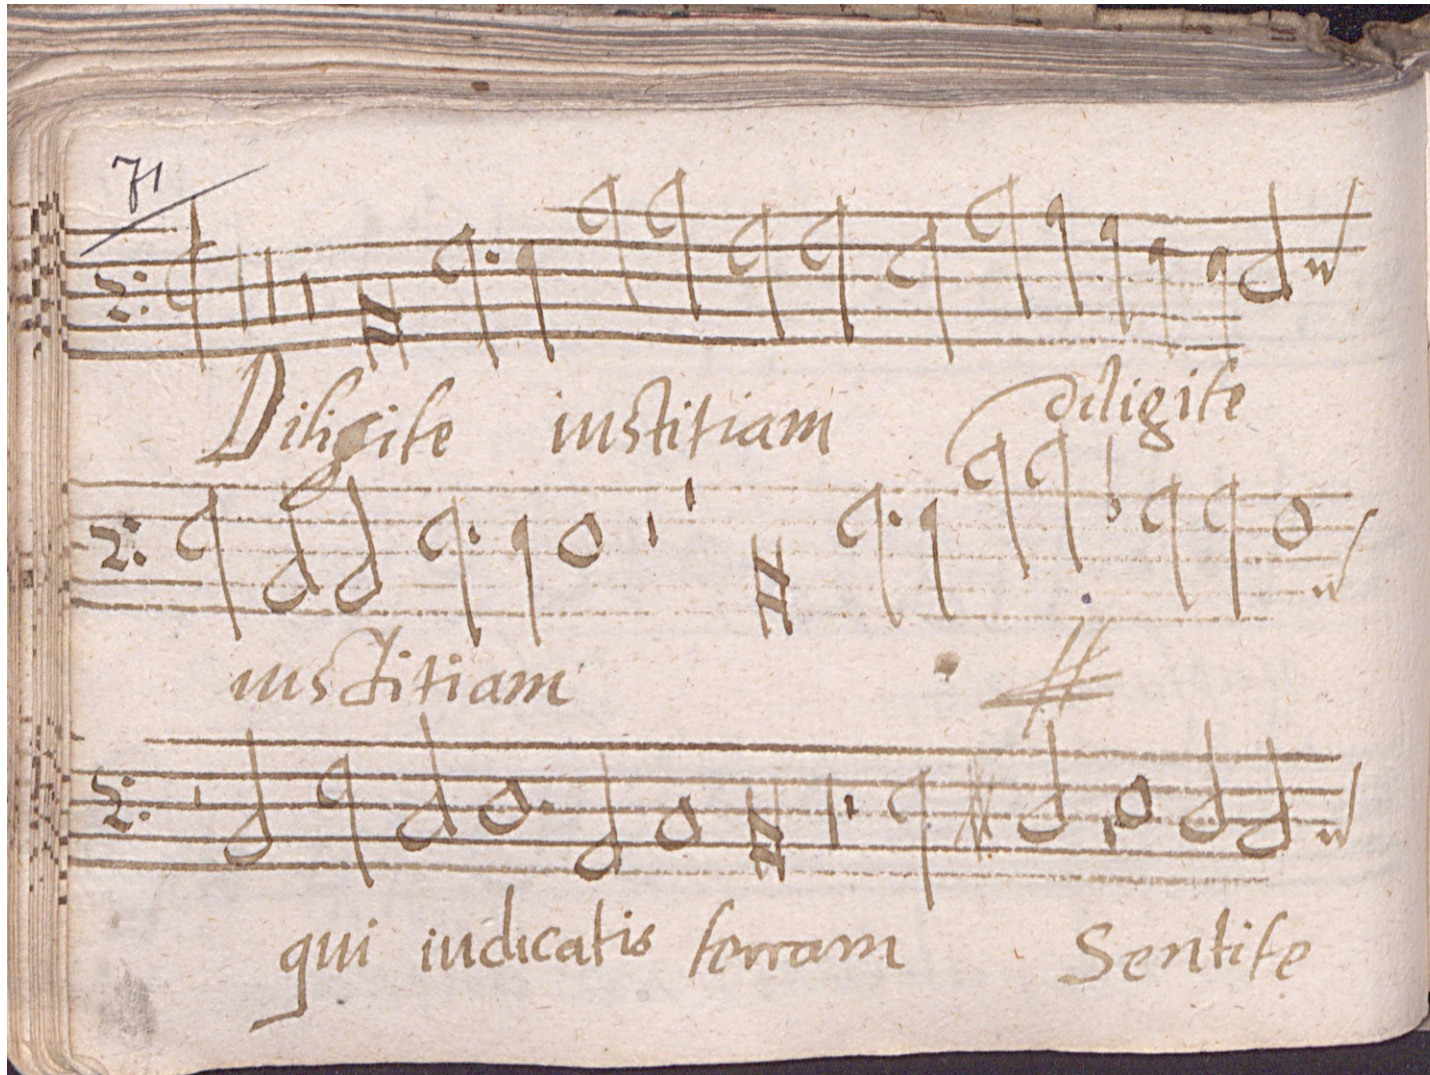 71
Diligite iustitiam diligite
iustitiam
qui iudicatis terram Sentite